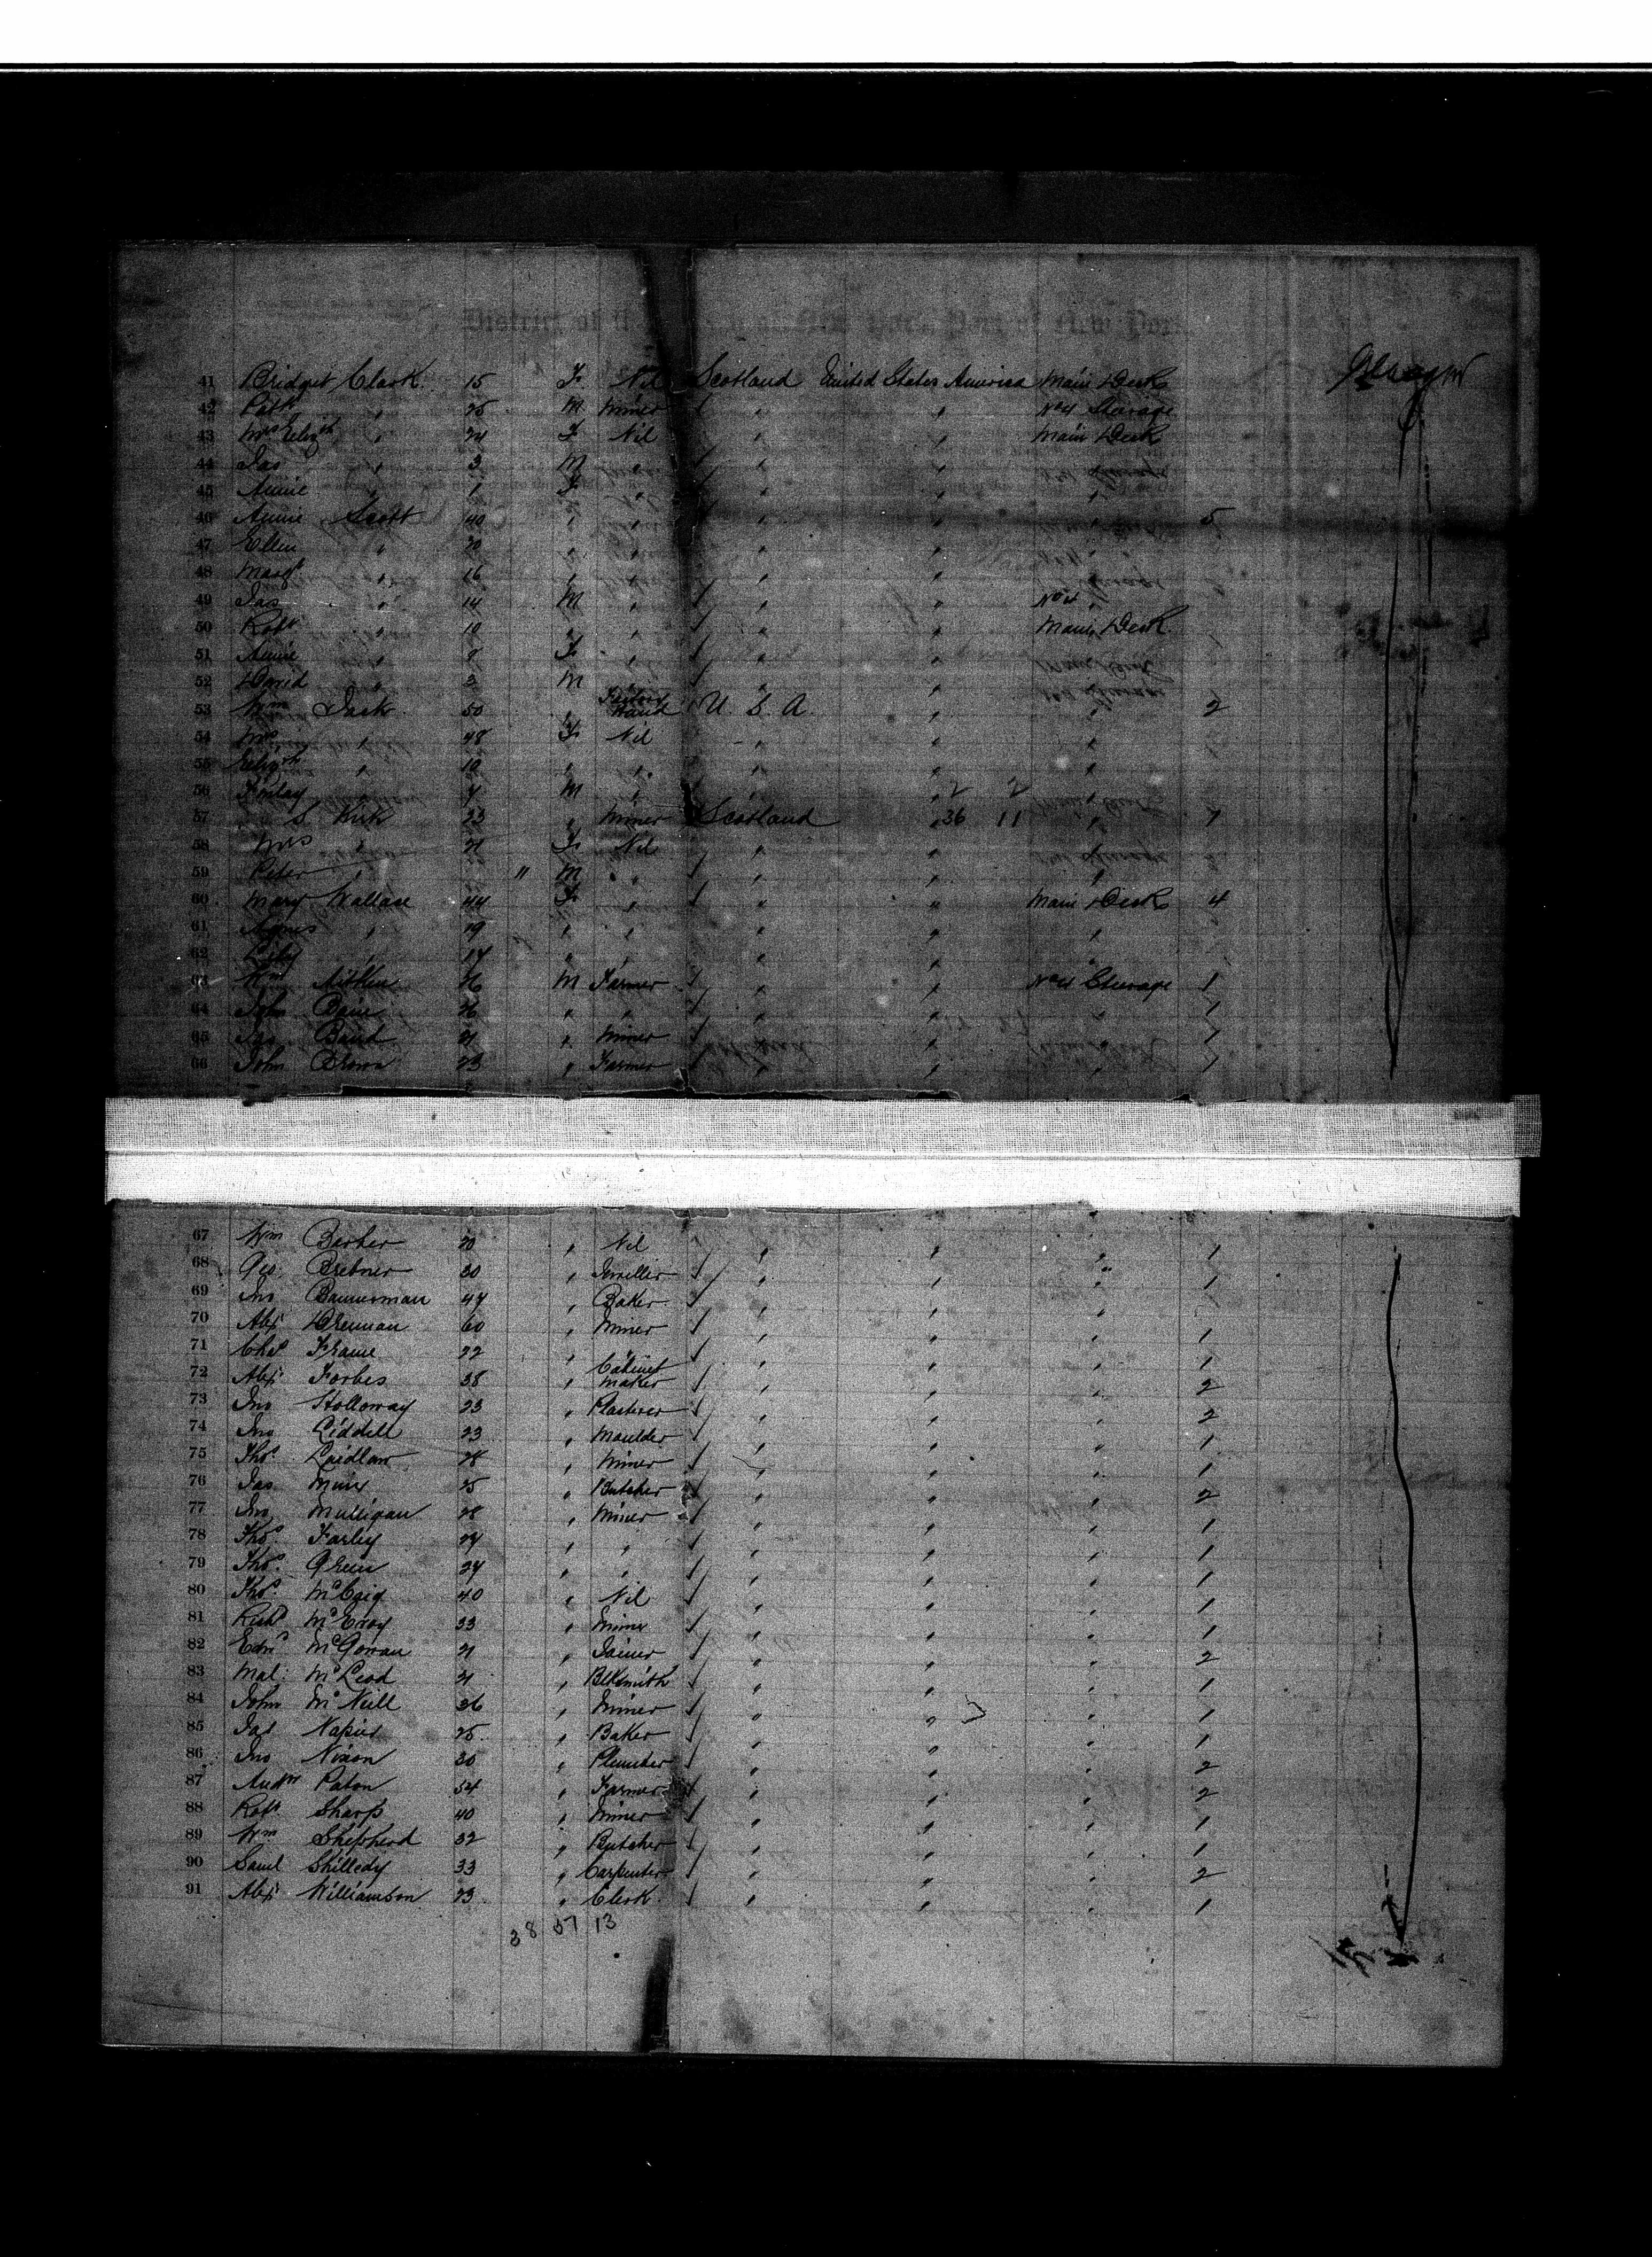 District of New York, Port of New York
41 Bridget Clark 15 F Nil Scotland United States America Main Deck Glasgow
42 Patk " 25 M Miner " " No 4 Steerage
43 Mrs Elizth " 24 F Nil " " Main Deck
44 Jas " 3 M " " " "
45 Annie " 1 F " " " "
46 Annie Scott 40 " " " " " 5
47 Ellen " 20 " " " " "
48 Margt " 16 " " " " "
49 Jas " 14 M " " " No 4 "
50 Robt " 10 " " " " Main Deck
51 Annie " F " " " "
52 David " 3 M " " " "
53 Wm Jack 50 " Hand U. S. A " " 2
54 Mrs " 48 F Nil " " "
55 Elizth " 10 " " " " "
56 M " " " 2 2 "
57 S Kirk 23 " Miner Scotland " 36 11 " 7
58 Mrs " 21 F Nil " " "
59 Peter " " M " " " "
60 Mary Wallace 44 F " " " Main Deck 4
61 Agnes " 19 " " " " "
62 " 14 " " " " "
63 Wm Aitken 26 M Farmer " " No 4 Steerage 1
64 John Bain 26 " " " " " 1
65 Jas Baird 21 " Miner " " " 1
66 John Brown 23 " Farmer " " " 1
67 Wm Berher 20 " Nil " " " 1
68 Geo Brebner 30 " " " " 1
69 Jno Bannerman 47 " Baker " " "
70 Alexr Drennan 60 " Miner " " " 1
71 Chas Frame 22 " " " " " 1
72 Alexr Forbes 38 " Cabinet maker " " " 2
73 Jno Holloway 23 " Plasterer " " " 2
74 Jno Liddell 23 " Moulder " " " 1
75 Thos Laidlaw 28 " Miner " " " 1
76 Jas Muir 25 " Butcher " " " 2
77 Jno Mulligan 28 " Miner " " " 1
78 Thos Farley 24 " " " " " 1
79 Thos Green 24 " " " " " 1
80 Thos McCaig 40 " Nil " " " 1
81 Richd McEvoy 33 " Miner " " " 1
82 Edwd McGowan 21 " Joiner " " " 2
83 Mal: McLeod 21 " Blksmith " " " 1
84 John McNeill 36 " Miner " " " 1
85 Jas Napier 25 " Baker " " " 1
86 Jno Nixon 30 " Plumber " " " 2
87 Andw Paton 54 " Farmer " " " 2
88 Robt Sharp 40 " Miner " " " 1
89 Wm Shepherd 32 " Butcher " " " 1
90 Saml Skilledy 33 " Carpenter " " " 2
91 Alexr Williamson 23 " Clerk " " " 1
38 57 13